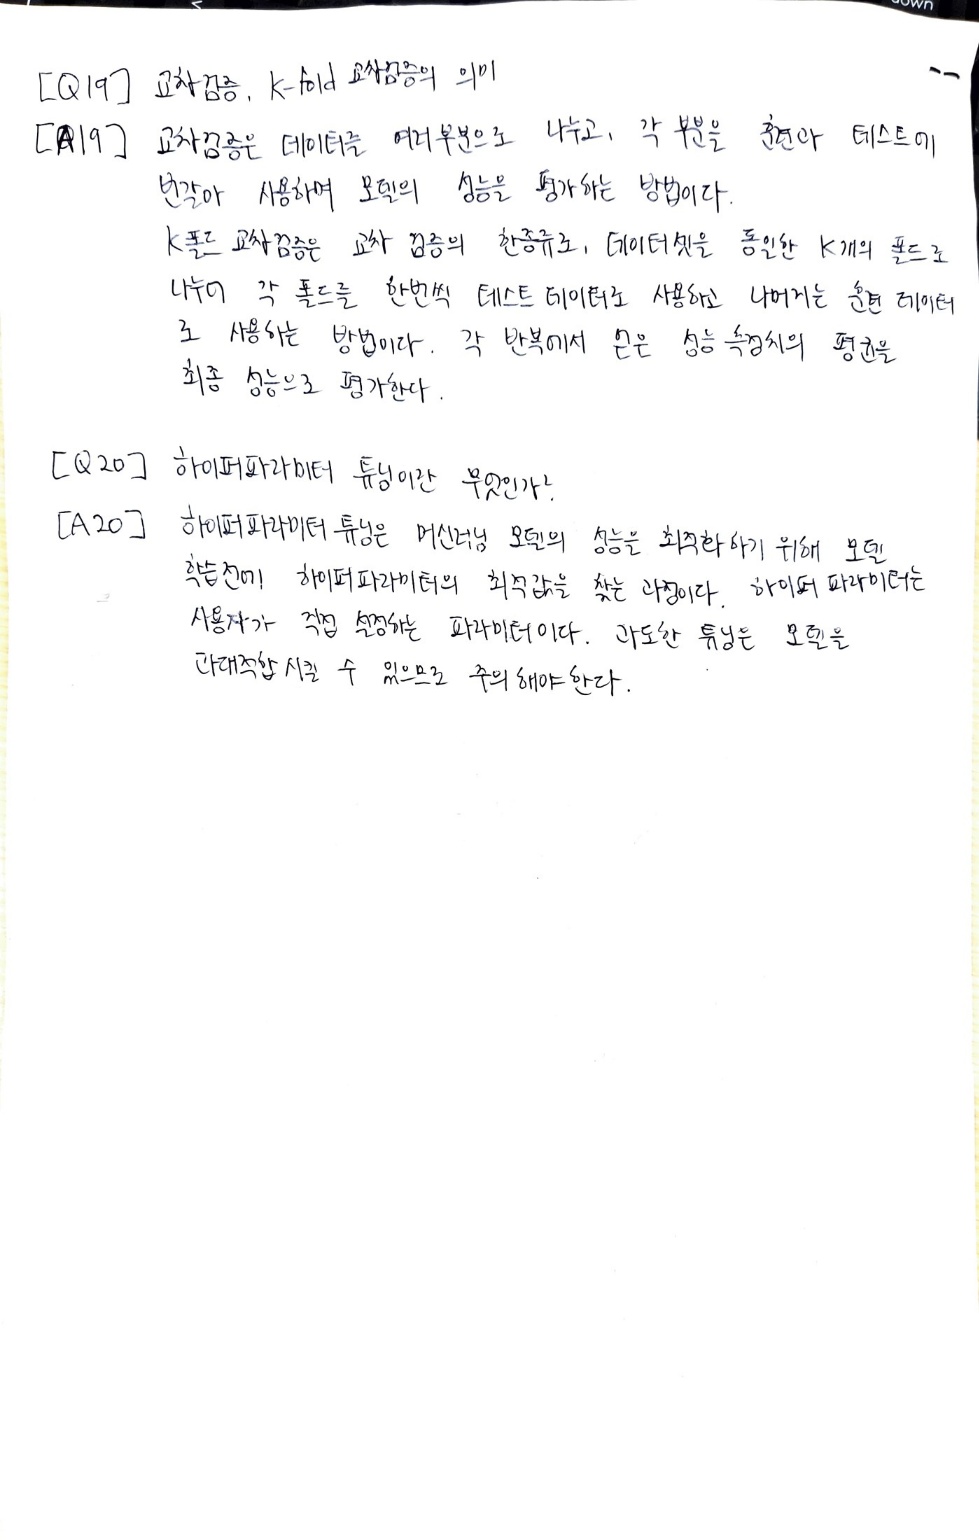 down
[Q19] 교차검증, k-fold 교차검증의 의미
[A19] 교차검증은 데이터를 여러부분으로 나누고, 각 부분을 훈련과 테스트에
번갈아 사용하며 모델의 성능을 평가하는 방법이다.
k폴드 교차검증은 교차 검증의 한종류로, 데이터셋을 동일한 k개의 폴드로
나누어 각 폴드를 한번씩 테스트 데이터로 사용하고 나머지는 훈련 데이터
로 사용하는 방법이다. 각 반복에서 얻은 성능 측정치의 평균을
최종 성능으로 평가한다.
[Q20] 하이퍼파라미터 튜닝이란 무엇인가?
[A20] 하이퍼파라미터 튜닝은 머신러닝 모델의 성능을 최적화하기 위해 모델
학습 전에 하이퍼파라미터의 최적값을 찾는 과정이다. 하이퍼 파라미터는
사용자가 직접 설정하는 파라미터이다. 과도한 튜닝은 모델을
과대적합 시킬 수 있으므로 주의해야 한다.